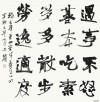 遇事不怒
基本吃素
多多散步
勞逸適度